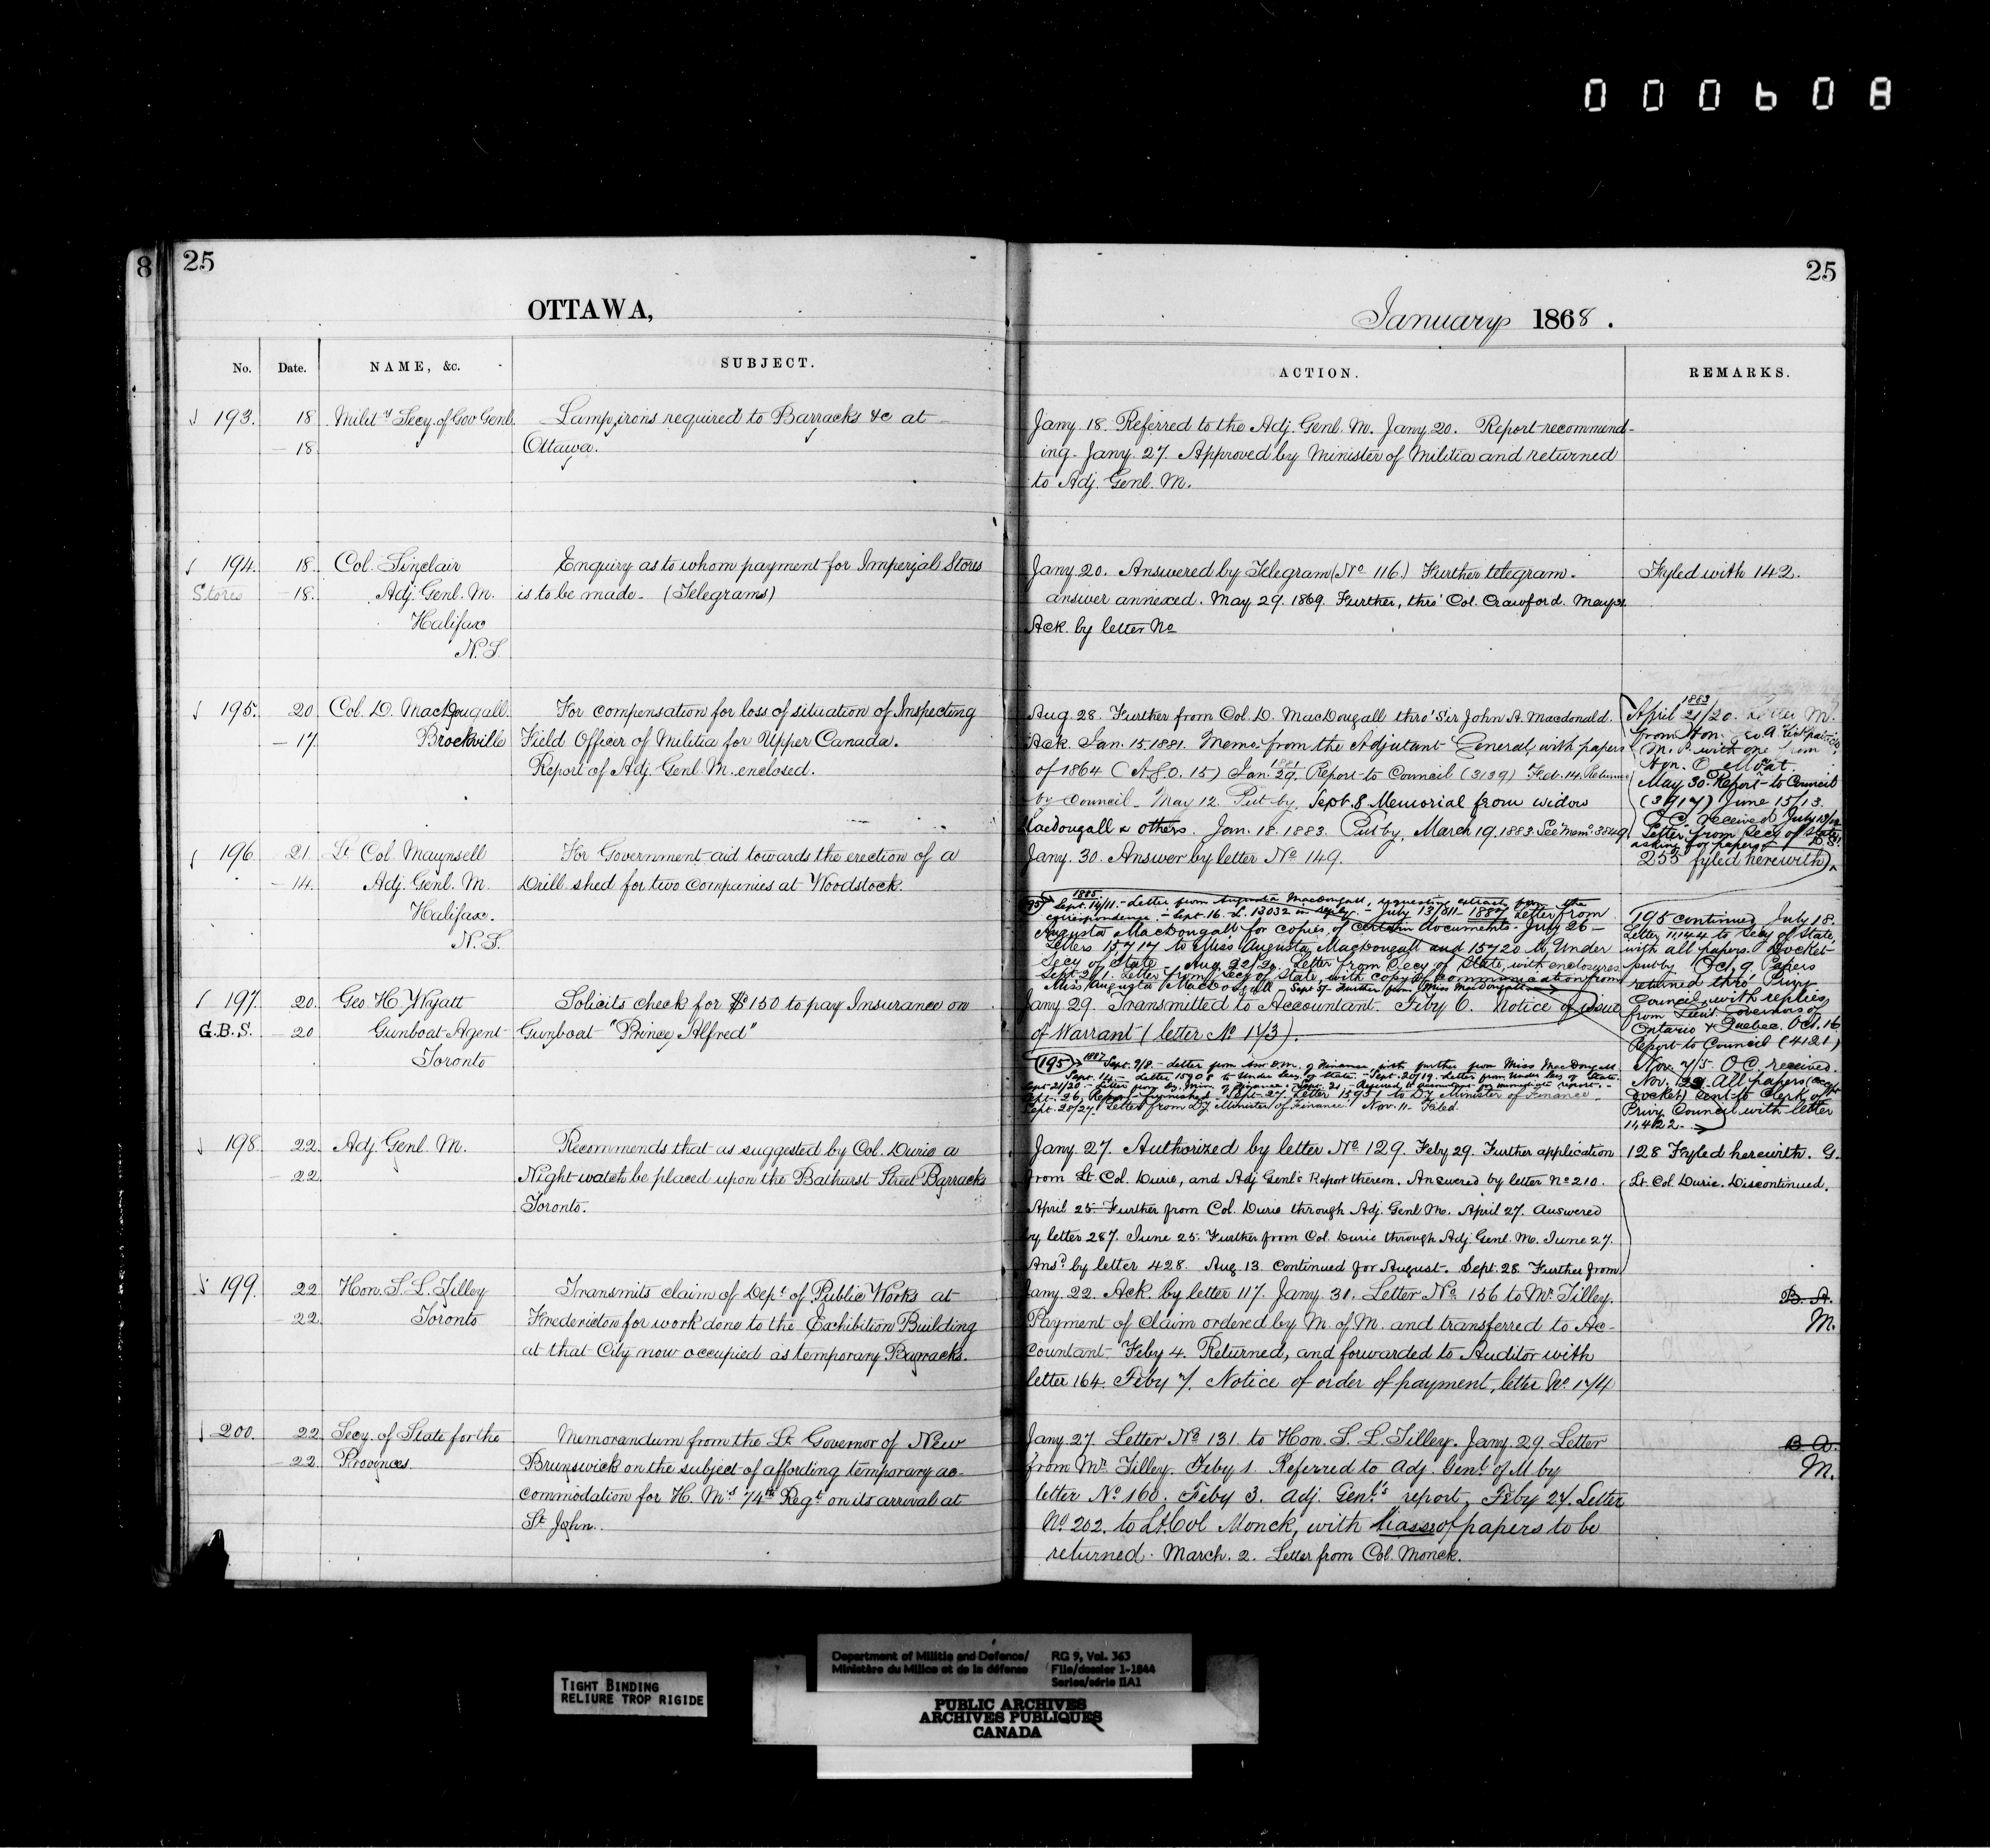 000608
8
25
25
OTTAWA,
January 1868.
No.
Date.
NAME, &c.
SUBJECT.
ACTION.
REMARKS.
193.
18
Milit.y Secy. of Gov Genl.
Lamp irons required to Barracks &c at
— 18
Ottawa.
Jany. 18. Referred to the Adj. Genl. M. Jany 20. Report recommend-
ing. Jany. 27. Approved by Minister of Militia and returned
to Adj. Genl. M.
194.
18.
Col. Sinclair
Enquiry as to whom payment for Imperial Stores
Stores
— 18.
Adj. Genl. M.
is to be made. (Telegrams)
Halifax
N.S.
Jany 20. Answered by Telegram (No 116.) Further telegram.
answer annexed. May 29. 1869. Further, thro' Col. Crawford. May 31.
Ack. by letter No
Fyled with 142.
195.
20
Col. D. MacDougall.
For compensation for loss of situation of Inspecting
— 17
Brockville
Field Officer of Militia for Upper Canada.
Report of Adj. Genl. M. enclosed.
Aug. 28. Further from Col. D. MacDougall thro' Sir John A. Macdonald.
Ack. Jan. 15. 1881. Memo: from the Adjutant General with papers
of 1864 (A.G.O. 15) Jan. 1881 29. Report to Council (3139) Feb. 14. Returned
by Council. Mar 12. Put by. Sept. 8 Memorial from widow
Macdougall & others. Jan. 18. 1883. Put by. March 19. 1883. See Memo. 3849.
1883
April 21/20. Letter
from Hon. Geo. A. Kirkpatrick
M.P. with one from
Hon. O. Mowat.
May 30. Report to Council
(3917) June 15/13.
O.C. received July
Letter from Secy of State
asking for papers
255 fyled herewith)
196.
21.
Lt. Col. Maunsell
For Government aid towards the erection of a
— 14.
Adj. Genl. M.
Drill shed for two Companies at Woodstock.
Halifax.
N.S.
Jany. 30. Answer by letter No 149.
195 1885
Sept. 14/11. – Letter from Augusta MacDougall, requesting extract from the
correspondence. – Sept. 16. L. 13032 in reply. – July 13/811 – 1887 Letter from
Augusta MacDougall for copies of certain documents. July 26 –
Letters 15717 to Miss Augusta MacDougall and 15720 to Under
Secy of State Aug. 22/20 Letter from Secy of State, with enclosures
Sept. 2/1. Letter from Secy of State, with copy of communication from
Miss Augusta MacDougall – Sept 5/. Further from Miss MacDougall
195 continued July 18.
Letter 11,144 to Secy of State,
with all papers. Docket
put by Oct. 9. Papers
returned thro' Privy
Council, with replies
from Lieut. Governors of
Ontario & Quebec. Oct. 16.
Report to Council (4121)
Nov. 7/5. O.C. received.
Nov. 12. All papers (except
docket) sent to Clerk of
Privy Council with letter
11,422.
197.
20.
Geo H. Wyatt
Solicits check for $150 to pay Insurance on
G.B.S.
— 20
Gunboat Agent
Gunboat "Prince Alfred"
Toronto
Jany 29. Transmitted to Accountant. Feby 6. Notice of issue
of Warrant (letter No 173).
195 1887 Sept. 9/8. – Letter from of Finance, with further from Miss MacDougall
Sept. 14. – Letter 15908 to Under Secy. of State. – Sept. 20/19. – Letter from Under Secy of State.
Sept. 21/20 – Letter from Dy. Min. of Finance. – Sept. 21. – Referred to Accountant for immediate report. –
Sept. 26. Report furnished – Sept. 27. Letter 15951 to Dy Minister of Finance –
Sept. 28/27. Letter from Dy Minister of Finance. Nov. 11 – Filed.
198.
22.
Adj. Genl. M.
Recommends that as suggested by Col. Durie a
— 22
Night watch be placed upon the Bathurst Street Barracks
Toronto.
Jany. 27. Authorized by letter No. 129. Feby 29. Further application
from Lt. Col. Durie, and Adj Genl's Report thereon. Answered by letter No 210.
April 25. Further from Col. Durie through Adj. Genl. M. April 27. Answered
by letter 287. June 25. Further from Col. Durie through Adj. Genl. M. June 27.
Ansd by letter 428. Aug. 13. Continued for August. Sept. 28. Further from
128 Fyled herewith. G.
Lt. Col. Durie. Discontinued.
199.
22
Hon. S. L. Tilley
Transmits claim of Dept of Public Works at
— 22
Toronto
Fredericton for work done to the Exhibition Building
at that City now occupied as temporary Barracks.
Jany. 22. Ack. by letter 117. Jany. 31, Letter No 156 to Mr. Tilley.
Payment of claim ordered by M. of M. and transferred to Ac-
countant. Feby 4. Returned, and forwarded to Auditor with
letter 164. Feby 7. Notice of order of payment, letter No 174
B. A.
M.
200.
22
Secy. of State for the
Memorandum from the Lt. Governor of New
— 22
Provinces.
Brunswick on the subject of affording temporary ac-
commodation for H. M's 74th Regt on its arrival at
St. John.
Jany 27. Letter No 131 to Hon. S. L. Tilley. Jany. 29 Letter
from Mr. Tilley. Feby 1. Referred to Adj. Genl. of M by
letter No 160. Feby 3. Adj. Genl's report. Feby 27. Letter
No 202. to Lt. Col Monck, with liasse of papers to be
returned. March. 2. Letter from Col. Monck.
B. A.
M.
TIGHT BINDING
RELIURE TROP RIGIDE
Department of Militia and Defence/
Ministère du Milice et de la défense
RG 9, Vol. 363
File/dossier 1-1844
Series/série IIA1
PUBLIC ARCHIVES
ARCHIVES PUBLIQUES
CANADA